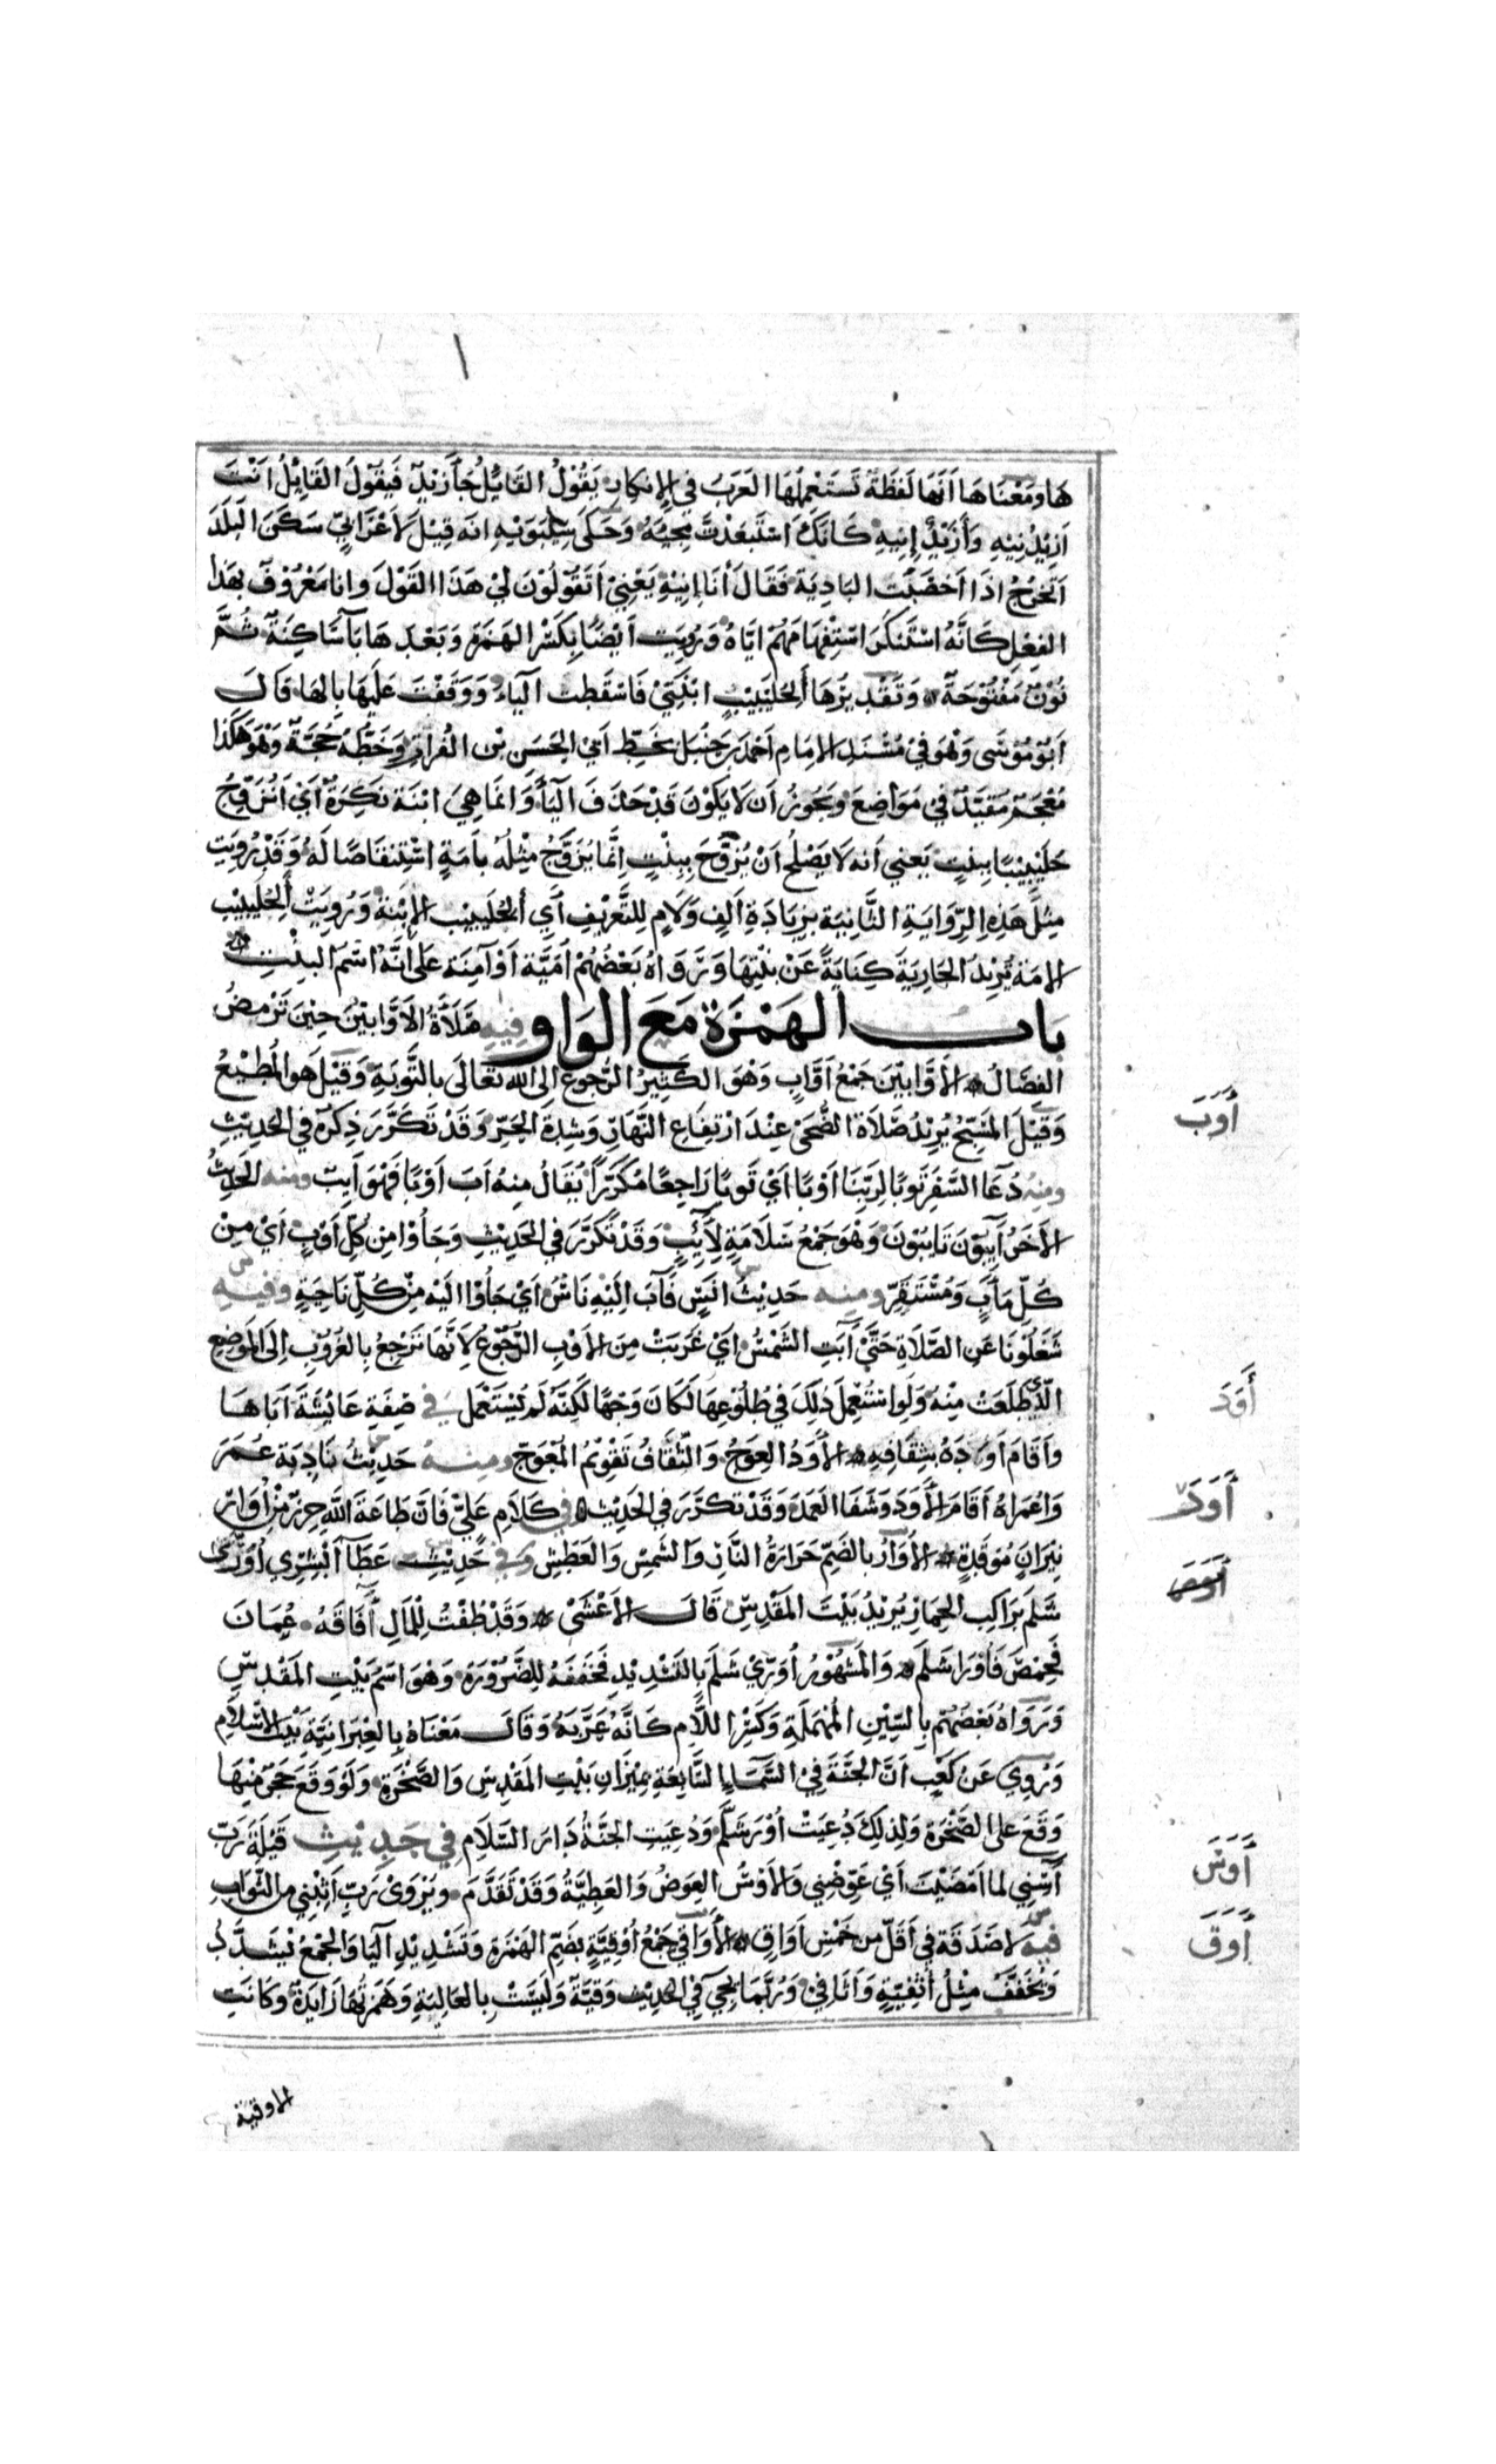 هَا وَمَعْنَاهَا اَنَّهَا لَفظَةٌ تَسْتَعْمِلُهَا العَرَبُ فِي الاِنكار يَقُوْلُ القَائِلُ جَآ زَيْدٌ فَيَقُوْلُ القَايِلُ اَنْتَ
اَزِيْدُنِيْهِ وَأَزَيْدٌ اِنِيهِ كَانَّكَ اسْتَبعَدْتَ مَجِيْئَهُ وَحَكَى سِيْبَوَيْهِ انَه قِيْلَ لاَعْرَابِيٍّ سَكَنَ البَلَدَ
اَتَخْرُجُ اذَا اَخصَبَت البَادِيَة فَقَالَ أَنَا اِنِيْهِ يَعْنِيْ اَتَقُوْلُوْنَ لِيْ هَذَا القَوْلَ وانا مَعْرُوْفٌ بهَذا
الفِعْلِ كَانَّهُ اسْتَنكَرَ اسْتِفْهَامَهُمْ ايَّاهُ وَرُوِيَت اَيْضًا بِكَسْرِ الهَمَزَة وَبَعْدَهَا بَآ سَاكِنَةٌ ثُمَّ
نُوْنٌ مَفْتُوْحَةٌ وَتَقْدِيْرُهَا أَلِجُلَيْبِيْبٍ ابْنَتِيْ فَاسْقَطت اليَاءَ وَوَقَفْتَ عَلَيهَا بالهَا قَالَ
اَبُوْ مُوْسَى وَهْوَ فِيْ مُسْنَدِ الاِمَامِ اَحْمَدَ بن حَنْبَل بخَطِّ اَبِيْ الحَسَنِ بْن الفُرَاتِ وَخَطُّهُ حُجَّةٌ وَهْوَ هَكَذا
مُعْجَمٌ مُقَيَّدٌ فِي مَوَاضِعَ وَيَجُوْزُ اَن لَا يَكُوْنَ قَدْ حَذَفَ اليَآءَ وَانَمَا هِيَ ابْنَة نَكِرَةٌ اَيْ اَتُزَوِّجُ
جُلَيْبِيْبًا بِبنتٍ يَعنِي اَنه لَا يَصْلحُ اَنْ يُزَوَّجَ بِبِنْتٍ اِنَّمَا يُزَوَّجُ مِثْلُهُ بِاَمَةٍ اسْتِنقَاصًا لَهُ وَقَدْ رُوِيَت
مِثلُ هَذِهِ الرِّوَايَةِ الثَّانِيَة بزِيَادَة اَلِف وَلَامٍ لِلتَّعْرِيْفِ اَي أَلِجُلَيْبِيْب الاِبْنَةُ وَرُوِيَتْ أَلِجُلَيْبِيْب
الامَةُ يُرِيْدُ الجَارِيَةَ كِنَايَةً عَنْ بنْتِهَا وَرَوَاهُ بَعْضُهُمْ اُمَيَّة اَوْ آمِنَة عَلى اَنَّهُ اسْمُ البِنْتِ
بَاب الهَمْزَة مَعَ الوَاو فِيْهِ صَلَاةُ الاَوَّابِيْنَ حِيْنَ تَرْمَضُ
الفِصَالُ الاَوَّابِيْنَ جَمْعُ اَوَّابٍ وَهْوَ الكَثِيْرُ الرُّجوعِ اِلَى الله تَعَالَى بالتَّوبَةِ وَقِيْلَ هو المُطِيْعُ
وَقِيْلَ المُسَبِّحُ يُرِيْدُ صَلَاةَ الضُّحَى عِنْدَ ارْتِفَاعِ النَّهَارِ وَشِدَّةِ الحَرِّ وَقَدْ تَكَرَّرَ ذِكْرُهُ في الحَدِيْثِ
ومنهُ دُعَا السَّفَرِ تَوبًا لِرَبِّنَا اَوْبًا اَيْ تَوبًا رَاجِعًا مُكَرَّرًا يُقَالُ مِنهُ آبَ اَوْبًا فَهْوَ آيِبٌ ومنه الحَدِيْثُ
الاخَرُ آيِبُوْنَ تَايِبُونَ وَهْوَ جَمْعُ سَلَامَةٍ لِآئِبٍ وَقَدْ تَكَرَّرَ في الحَدِيْثِ وَجَاؤُا مِن كُلِّ اَوْبٍ اَيْ مِنْ
كُلِّ مَاٰبٍ وَمُسْتَقَرٍّ ومنه حَدِيْثُ انَسٍ فَآبَ اِلَيْهِ نَاسٌ اَيْ جَاؤُا الَيْهِ مِنْ كُلِّ نَاحِيَةٍ وفيه
شَغَلُوْنَا عَنِ الصَّلَاةِ حَتَّى آبَتِ الشَّمْسُ اَيْ غَرَبَتْ مِنَ الاَوْبِ الرُّجُوْعِ لاَنَّهَا تَرْجِعُ بِالغُرُوْبِ اِلَى المَوضعِ
الَّذِي طَلَعَتْ مِنْهُ وَلَوِ اسْتُعْمِلَ ذَلِكَ فِي طُلُوْعِهَا لَكَانَ وَجْهًا لَكِنَّهُ لَمْ يُسْتَعْمَل في صِفَةِ عَائِشَةَ اَبَاهَا
وَاَقَامَ اَوَدَهُ بثِقَافِهِ الاَوَدُ العِوَجُ وَالثِّقَافُ تَقْوِيْمُ المُعْوَجّ ومنهُ حَدِيْثُ نَادِبَة عُمَرَ
وَاعُمَرَاهُ اَقَامَ الأَوَدَ وَشَفَا العَمَدَ وَقَدْ تكَرَّرَ في الحَدِيْثِ في كَلَامِ عَلِيٍّ فَانَّ طَاعَةَ اللّهِ حِرْزٌ مِنْ اُوَارِ
نِيْرَانٍ مُوْقَدَةٍ الاُوَارُ بالضَّمِّ حَرَارَةُ النَّارِ وَالشَّمْسِ وَالعَطَشِ وَفي حَدِيْثِ عَطَا اَبْشِرِي اُوْرَى
شَلَّم بِرَاكِبِ الحِمَارِ يُرِيْدُ بَيْتَ المَقْدِسِ قَالَ الاَعْشَى وَقَدْ طُفْتُ لِلْمَالِ آفَاقَهُ عُمَانَ
فَحِمْصَ فَاوْرَا شَلَم وَالمَشْهُوْرُ اُوْرَيْ شَلَّمَ بالتَشْدِيْدِ فَخَفَّفَهُ لِلضَّرُوْرَةِ وَهْوَ اسْمُ بَيْتِ المَقْدِسِ
وَرَوَاهُ بَعْضُهُمْ بالسِّيْنِ المُهمَلَةِ وَكَسْرِ اللَّامِ كَانَّهُ عَرَّبَهُ وَقَالَ مَعْنَاهُ بِالعِبْرَانِيَّةِ بَيْتُ السَّلَامِ
وَرُوِي عَن كَعْبٍ اَنَّ الجَنَّةَ فِيْ السَّمَاءِ السَّابِعَةِ بمِيْزَانِ بَيْتِ المَقْدِسِ وَالصَّخْرَةِ وَلَوْ وَقَعَ حَجَرٌ مِنْهَا
وَقَعَ عَلى الصَّخْرَةِ وَلِذلِكَ دُعِيَتْ اُوْرَ شَلَّم وَدُعِيَتِ الجَنَّةُ دَارَ السَّلَامِ فِي حَدِيْثِ قَيْلَةَ رَبّ
آسْنِي لما اَمْضَيْتَ اَيْ عَوِّضْنِي وَالاَوْسُ العِوَضُ وَالعَطِيَّةُ وَقَدْ تَقَدَّمَ وَيُرْوَىْ رَبّ اَثِبْنِي من الثَّوَابِ
فيه لا صَدَقَة فِي اَقَلّ من خَمْسِ اَوَاقٍ الأَوَاقِي جَمْعُ اُوْقِيَّةٍ بضَمِّ الهَمْزَةِ وَتَشْدِيْدِ اليَا وَالجَمْعُ يُشَدَّدُ
وَيُخَفَّفُ مِثْلُ اُثْفِيَّةٍ وَاَثَافِيْ وَرُبَّمَا يَجِيْ في الحَدِيْث وَقِيَّةٌ وَلَيْسَتْ بالعَالِيَةِ وَهَمْزَتُهَا زَايِدَةٌ وَكَانَتِ
أَوَبَ
أَوَدَ
أَوَرَ
أَوَسَ
أَوَقَ
الاوقية